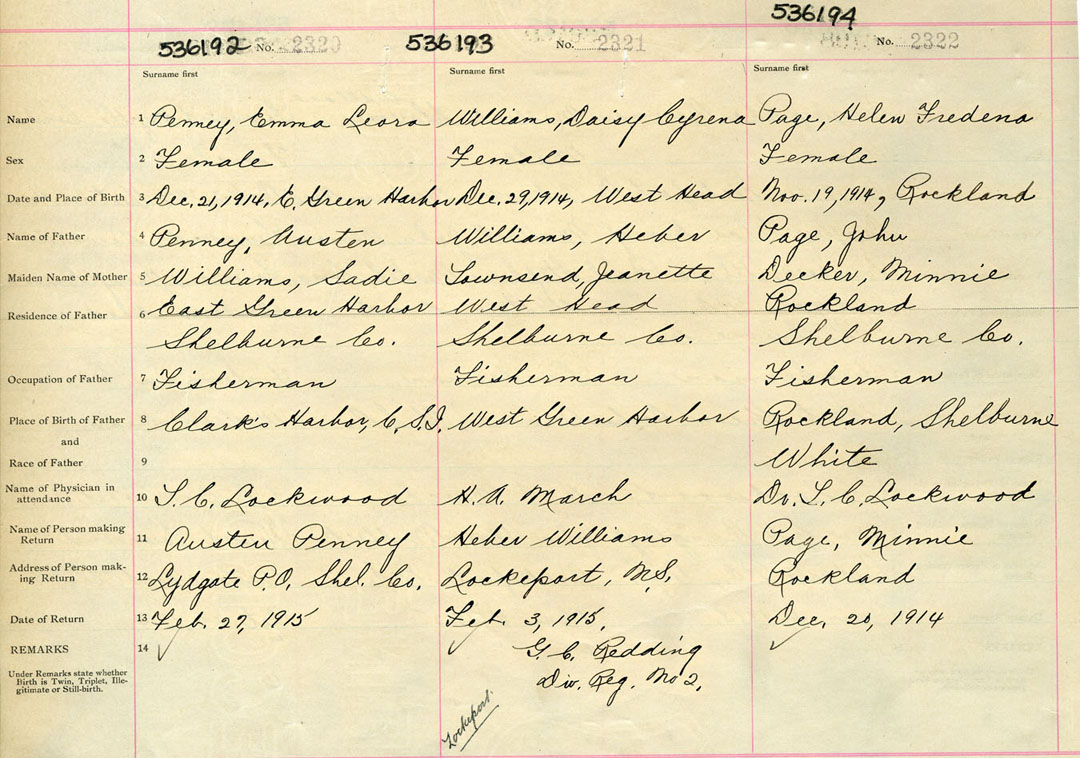 536194
536192 No. 2320 536193 No. 2321 No. 2322
Surname first Surname first Surname first
Name 1 Penney, Emma Leora Williams, Daisy Cyrena Page, Helen Fredena
Sex 2 Female Female Female
Date and Place of Birth 3 Dec. 21, 1914, E. Green Harbor Dec. 29, 1914, West Head Nov. 19, 1914, Rockland
Name of Father 4 Penney, Austen Williams, Heber Page, John
Maiden Name of Mother 5 Williams, Sadie Townsend, Jeanette Decker, Minnie
Residence of Father 6 East Green Harbor West Head Rockland
Shelburne Co. Shelburne Co. Shelburne Co.
Occupation of Father 7 Fisherman Fisherman Fisherman
Place of Birth of Father 8 Clark's Harbor, C.S.I. West Green Harbor Rockland, Shelburne
and
Race of Father 9 White
Name of Physician in 10 L. C. Lockwood H. A. March Dr. L. C. Lockwood
attendance
Name of Person making 11 Austen Penney Heber Williams Page, Minnie
Return
Address of Person mak- 12 Lydgate P.O. Shel. Co. Lockeport, N.S. Rockland
ing Return
Date of Return 13 Feb. 27, 1915 Feb. 3, 1915. Dec. 20, 1914
REMARKS 14 G. C. Redding
Under Remarks state whether Div. Reg. No 2.
Birth is Twin, Triplet, Ille-
gitimate or Still-birth.
Lockeport